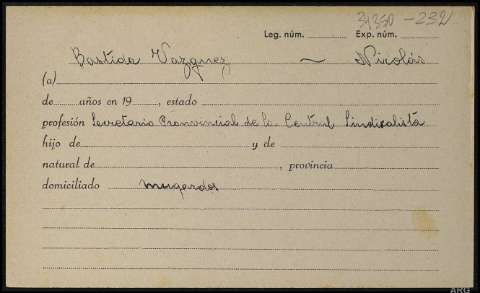 31350-232
Leg. núm. Exp. núm.
Bastida Vazquez ~ Nicolás
(a)
de años en 19 , estado
profesión Secretario Provincial de la Central Sindicalista
hijo de y de
natural de , provincia
domiciliado Mugardos
ARG